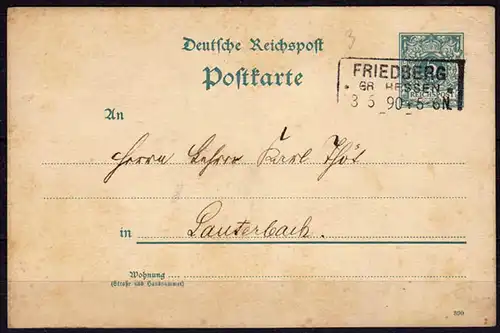 3
Deutsche Reichspost
Postkarte
FRIEDBERG
* GR. HESSEN *
3 5 90 * 5-6N.
An
Herrn Lehrer Karl
in Lauterbach.
Wohnung
(Straße und Hausnummer)